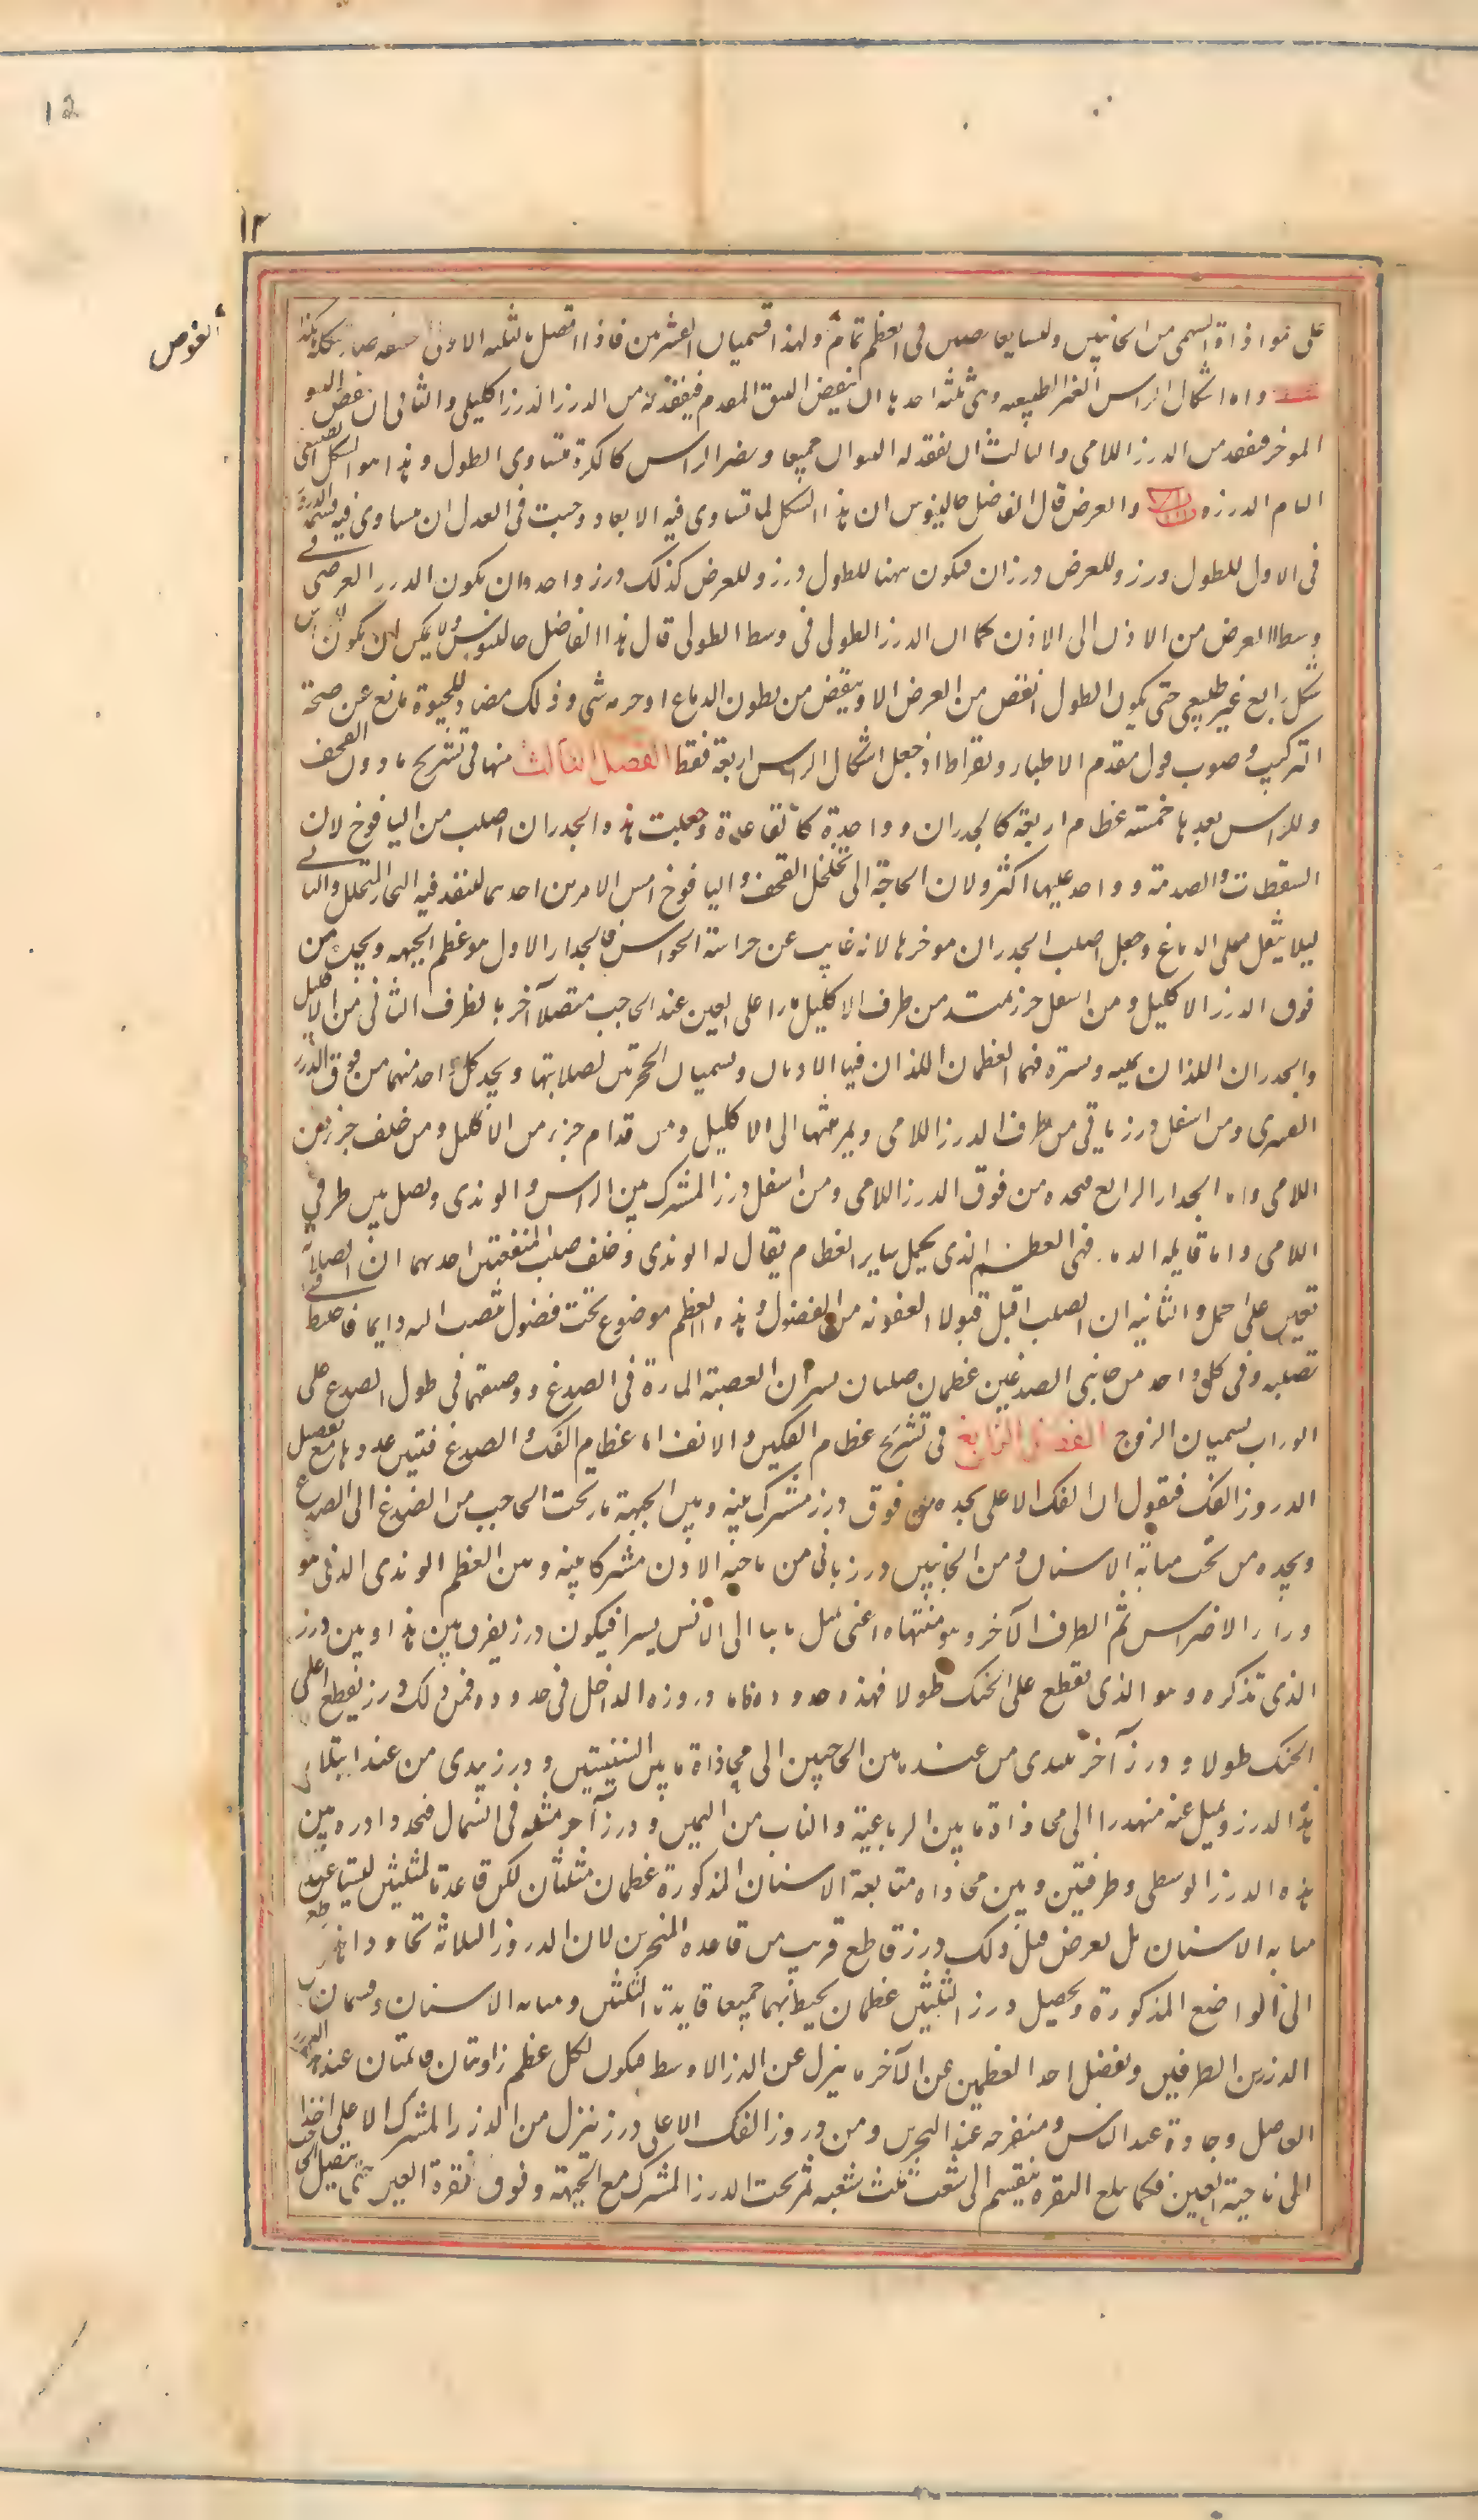 12
۱۲
الغوص
على موازاة السهمى من الجانبين وليسا بغايصين فى العظم تمام ولهذا قسميان العشرين فاذا اتصل بالثلثة الاول صار شكله هكذا
واما اشكال الراس الغير الطبيعيه وهى ثلثه احدها ان ينقص النتو المقدم فيفقد له من الدرز الدرز اكليلى والثانى ان ينقص النتو
الموخر فيفقد من الدرز اللامى والثالث ان يفقد له النتوان جميعا ويصير الراس كالكرة متساوى الطول وهذا هو الشكل الطبيعى
التام الدرزه والعرض قال الفاضل جالينوس ان هذا الشكل لما تساوى فيه الابعاد وجبت فى العدل ان يتساوى فيه قسمة الدروز
فى الاول للطول درز وللعرض درزان فيكون ههنا للطول درز وللعرض كذلك درز واحد وان يكون الدرز العرضى فى
وسط العرض من الاذن الى الاذن كما ان الدرز الطولى فى وسط الطولى قال هذا الفاضل جالينوس ولا يمكن ان يكون للراس
شكل رابع غير طبيعى حتى يكون الطول انقص من العرض الا وينقص من بطون الدماغ او جرمه شى وذلك مضاد للحيوة مانع عن صحة
التركيب وصوب قول مقدم الاطباء وبقراط اذ جعل اشكال الراس اربعة فقط الفصل الثالث منها فى تشريح ما دون القحف
وللراس بعدها خمسة عظام اربعة كالجدران وواحدة كالقاعدة وجعلت هذه الجدران اصلب من اليافوخ لان
السقطات والصدمة وواحد عليها اكثر ولان الحاجة الى تخلخل القحف واليافوخ امس الامرين احدهما لينفذ فيه البخار المتحلل والثانى
ليلا يثقل على الدماغ وجعل اصلب الجدران موخرها لانه غايب عن حراسة الحواس فالجدار الاول هو عظم الجبهه ويحده من
فوق الدرز الاكليل ومن اسفل درز يمتد من طرف الاكليل مارا على العين عند الحاجب متصلا آخر بالطرف الثانى من الاكليل
والجدران اللذان يمنه ويسره فهما العظمان اللذان فيهما الاذنان ويسميان الحجريين لصلابتها ويحد كل واحد منهما من فوق الدرز
القشرى ومن اسفل درز ياتى من طرف الدرز اللامى ويمر منتهيا الى الاكليل ومن قدام جزء من الاكليل ومن خلف جزء من
اللامى واما الجدار الرابع فيحده من فوق الدرز اللامى ومن اسفل درز المشترك بين الراس والوتدى ويصل بين طرفى
اللامى واما قاعدة الدماغ فهى العظم الذى يحمل ساير العظام يقال له الوتدى وخلف صلب لمنفعتين احدهما ان الصلابة
تعين على الحمل والثانيه ان الصلب اقبل قبولا للعفونه من الفضول وهذه العظم موضوع تحت فضول تنصب اليه دايما فاحتيط فى
تصليبه وفى كل واحد من جانبى الصدغين عظمان صلبان يستران العصبة المارة فى الصدغ ووضعهما فى طول الصدغ على
الوراب يسميان الزوج الفصل الرابع فى تشريح عظام الفكين والانف اما عظام الفك والصدغ فتبين عدوها مع تفصيل
الدروز الفك فنقول ان الفك الاعلى يحده من فوق درز مشترك بينه وبين الجبهة مارا تحت الحاجب من الصدغ الى الصدغ
ويحده من تحت منابة الاسنان ومن الجانبين درز ياتى من ناحية الاذن مشتركا بينه وبين العظم الوتدى الذى هو
وراء الاضراس ثم الطرف الآخر وهو منتهاه اعنى يميل نابيا الى الانس يسيرا فيكون درز يفرق بين هذا وبين الدرز
الذى تذكره وهو الذى يقطع على الحنك طولا فهذه حدوده فاما دروزه الداخل فى حدوده فمن ذلك درز يقطع اعلى
الحنك طولا ودرز آخر يبتدى من عند ما بين الحاجبين الى محاذاة ما بين الثنيتين ودرز يبتدى من عند ابتداء
هذا الدرز ويميل عنه منحدرا الى محاذاة ما بين الرباعية والناب من اليمين ودرز آخر مثله فى الشمال فيحدد ادره بين
هذه الدرز الوسطى وطرفين وبين محاذاه منابعة الاسنان المذكورة عظمان مثلثان لكن قاعدتا المثلثين ليستا عند
منابه الاسنان بل يعرض قبل ذلك درز قاطع قريب من قاعده المنخرين لان الدروز الثلاثة تجاوز هذا القاطع
الى المواضع المذكورة ويحصل درز المثلثين عظمان يحيط بهما جميعا قاعدتا المثلثين ومنابه الاسنان وقسمان
الدرزين الطرفين ويفصل احد العظمين عن الآخر ما ينزل عن الدرز الاوسط فيكون لكل عظم زاويتان قائمتان عند الدرز
الفاصل وحادة عند الناس ومنفرجه عند المنخرين ومن دروز الفك الاعلى درز ينزل من الدرز المشترك الاعلى اخذا
الى ناحية العين فكما يبلغ النقره ينقسم الى شعب ثلث شعبه تمر تحت الدرز المشترك مع الجبهة وفوق نقرة العين حتى يتصل بالحاجب